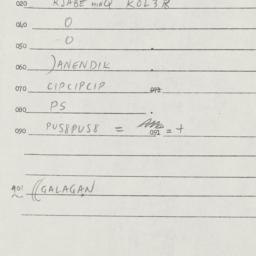 020 KSABE MINCY KOL38
040 O
050 O
060 )ANENDIK
070 CIPCIPCIP 073
080 PS
090 PUS8PUS8 = 091 = +
901 ((GALAGAN